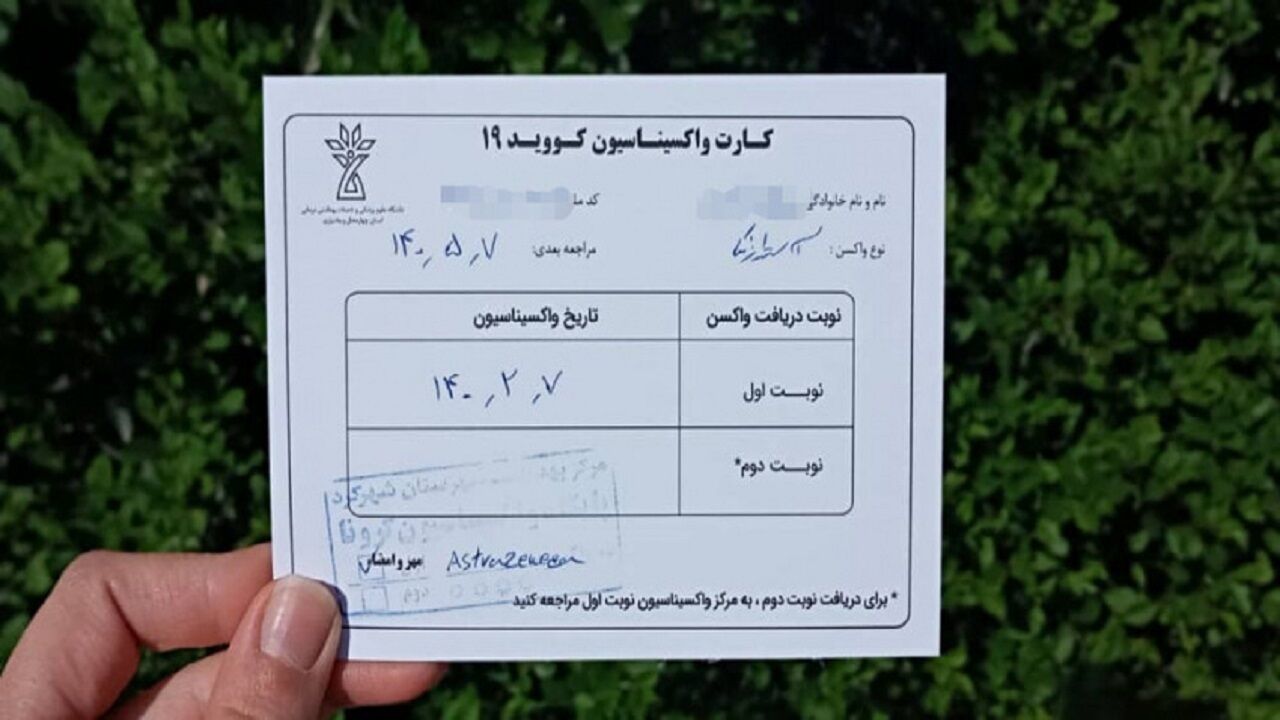 کارت واکسیناسیون کووید ۱۹
دانشگاه علوم پزشکی و خدمات بهداشتی درمانی
استان چهارمحال و بختیاری
نام و نام خانوادگی کد مل
نوع واکسن : آسترازنکا مراجعه بعدی: ۱۴۰۰٫۵٫۷
نوبت دریافت واکسن تاریخ واکسیناسیون
نوبت اول ۱۴۰۰٫۲٫۷
نوبت دوم*
مرکز شهرستان شهرکرد
کرونا
مهر و امضاء AstraZeneca
دوم
* برای دریافت نوبت دوم ، به مرکز واکسیناسیون نوبت اول مراجعه کنید